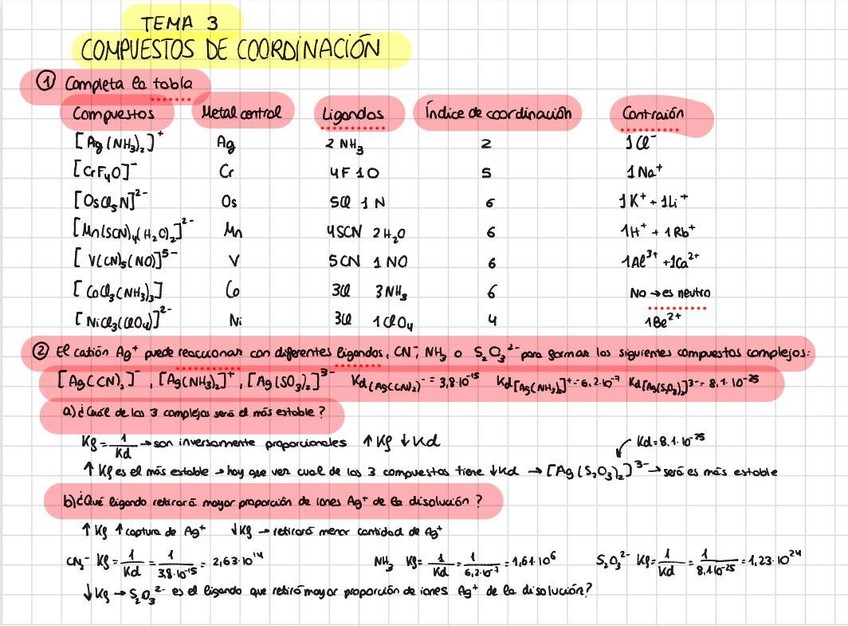 TEMA 3
COMPUESTOS DE COORDINACIÓN
① Completa la tabla
Compuestos Metal central Ligandos Índice de coordinación Contraión
[Ag(NH₃)₂]⁺ Ag 2 NH₃ 2 1Cl⁻
[CrF₄O]⁻ Cr 4F 1O 5 1Na⁺
[OsCl₅N]²⁻ Os 5Cl 1N 6 1K⁺ + 1Li⁺
[Mn(SCN)₄(H₂O)₂]²⁻ Mn 4SCN 2H₂O 6 1H⁺ + 1Rb⁺
[V(CN)₅(NO)]⁵⁻ V 5CN 1NO 6 1Al³⁺ + 1Ca²⁺
[CoCl₃(NH₃)₃] Co 3Cl 3NH₃ 6 No → es neutro
[NiCl₃(ClO₄)]²⁻ Ni 3Cl 1ClO₄ 4 1Be²⁺
② El catión Ag⁺ puede reaccionar con diferentes ligandos, CN⁻, NH₃ o S₂O₃²⁻ para formar los siguientes compuestos complejos:
[Ag(CN)₂]⁻, [Ag(NH₃)₂]⁺, [Ag(SO₃)₂]³⁻ Kd(Ag(CN)₂)⁻ = 3,8·10⁻¹⁵ Kd[Ag(NH₃)₂]⁺ = 6,2·10⁻⁷ Kd[Ag(S₂O₃)₂]³⁻ = 8,1·10⁻²⁵
a) ¿Cuál de los 3 complejos será el más estable?
Kf = 1/Kd → son inversamente proporcionales ↑Kf ↓Kd Kd = 8,1·10⁻²⁵
↑Kf es el más estable → hay que ver cual de los 3 compuestos tiene ↓Kd → [Ag(S₂O₃)₂]³⁻ → será es más estable
b) ¿Qué ligando retirará mayor proporción de iones Ag⁺ de la disolución?
↑Kf ↑captura de Ag⁺ ↓Kf → retirará menor cantidad de Ag⁺
CN₂⁻ Kf = 1/Kd = 1/3,8·10⁻¹⁵ = 2,63·10¹⁴ NH₃ Kf = 1/Kd = 1/6,2·10⁻⁷ = 1,61·10⁶ S₂O₃²⁻ Kf = 1/Kd = 1/8,1·10⁻²⁵ = 1,23·10²⁴
↓Kf → S₂O₃²⁻ es el ligando que retiró mayor proporción de iones Ag⁺ de la disolución?